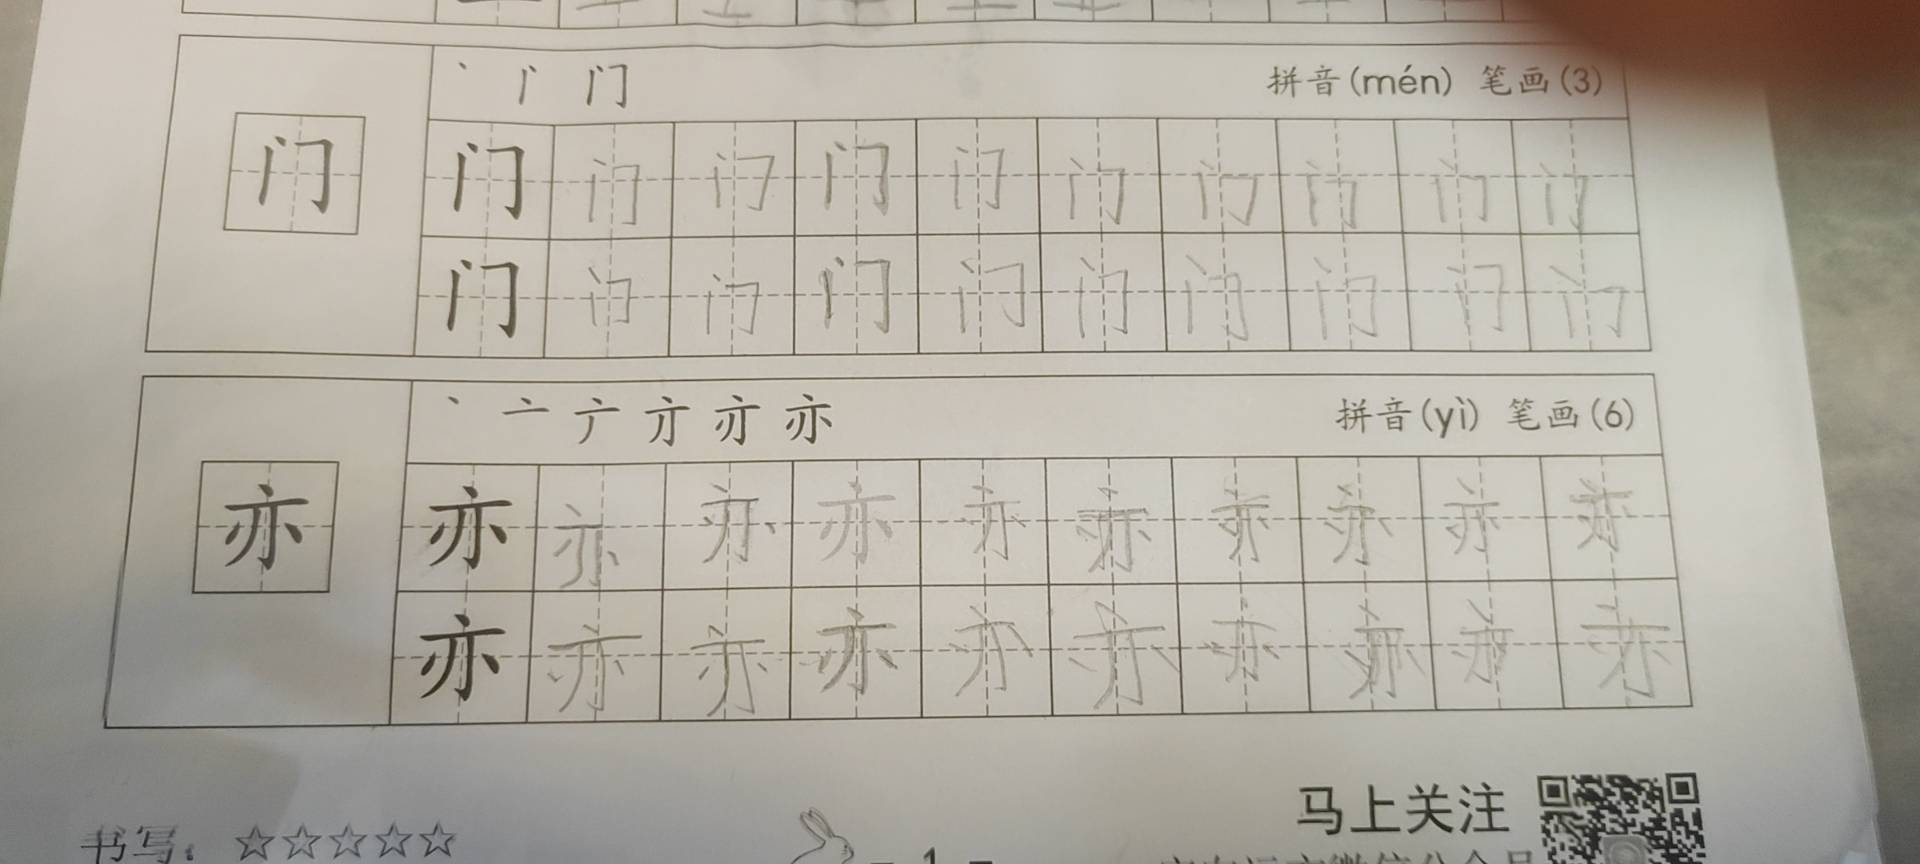 丶 门 门 拼音(mén) 笔画(3)
门 门 门 门 门 门 门 门 门 门 门
门 门 门 门 门 门 门 门 门 门
丶 亠 亣 亦 拼音(yì) 笔画(6)
亦 亦 亦 亦 亦 亦 亦 亦 亦 亦 亦
亦 亦 亦 亦 亦 亦 亦 亦 亦 亦
马上关注
书写：☆☆☆☆☆
- 1 -